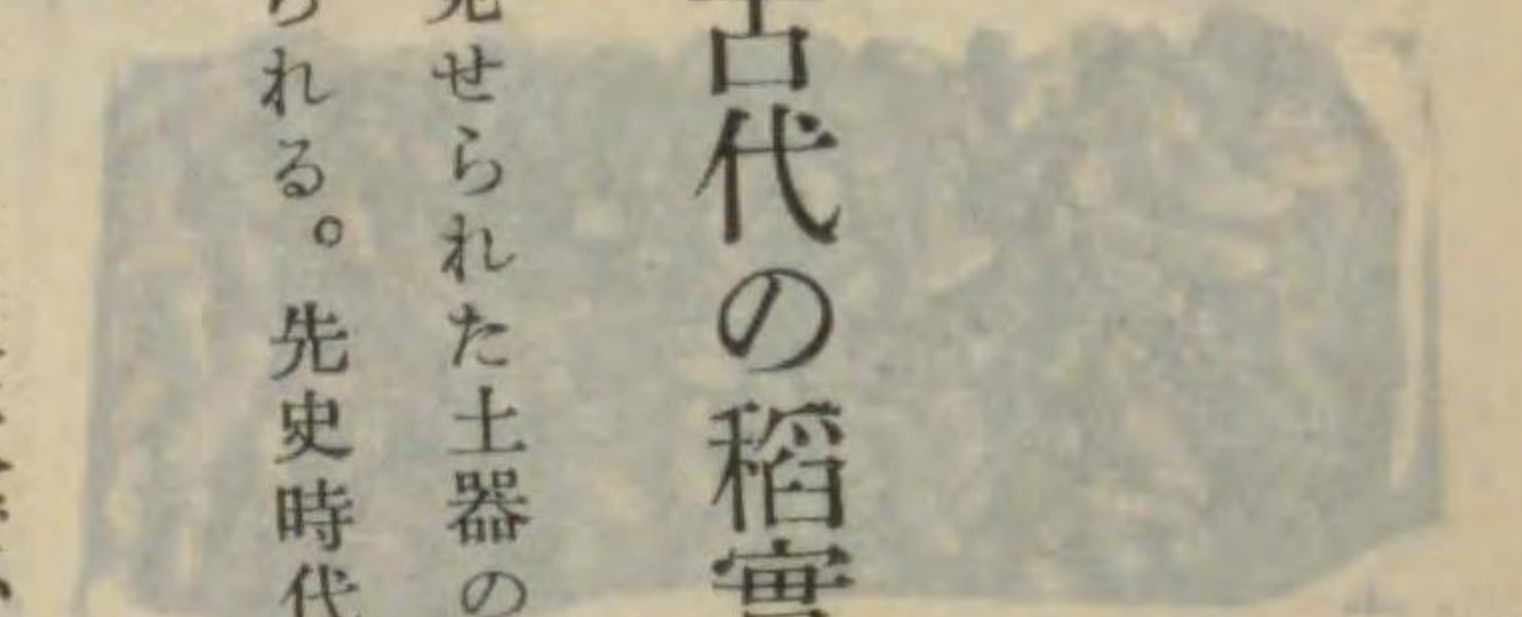 古代の稻實
見せられた土器の
られる。先史時代